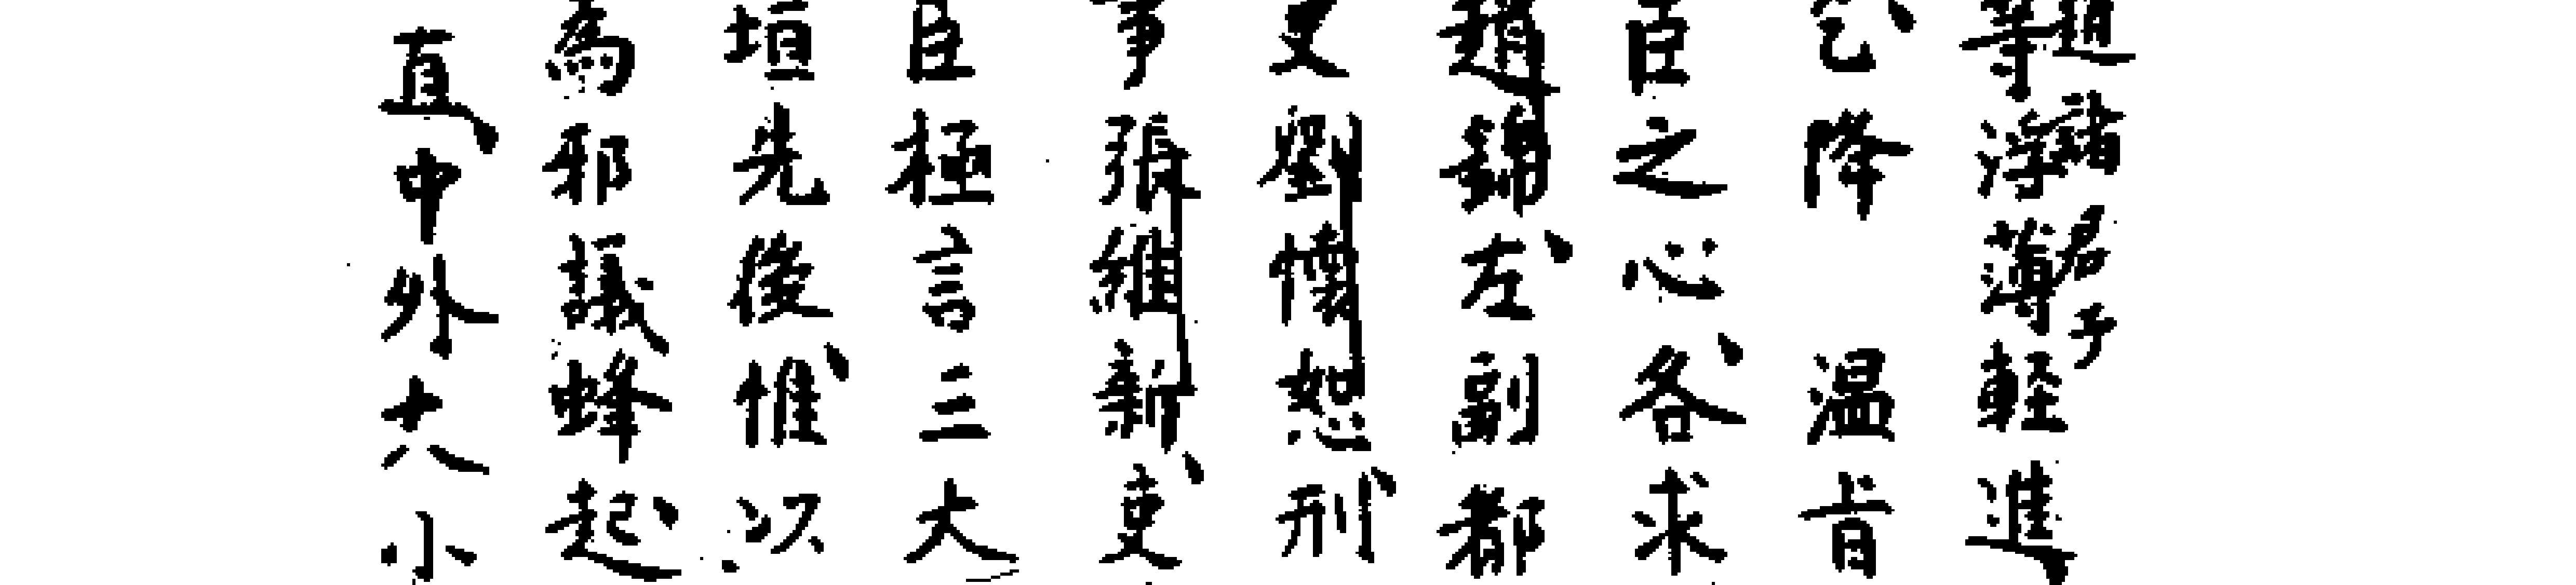 趙諸君子
等浮薄軽進
乞降　温旨
臣之心各求
趙錦左副都
史劉懐恕刑
事張維新吏
臣極言三大
垣先後惟以
為邪議蜂起
直中外大小